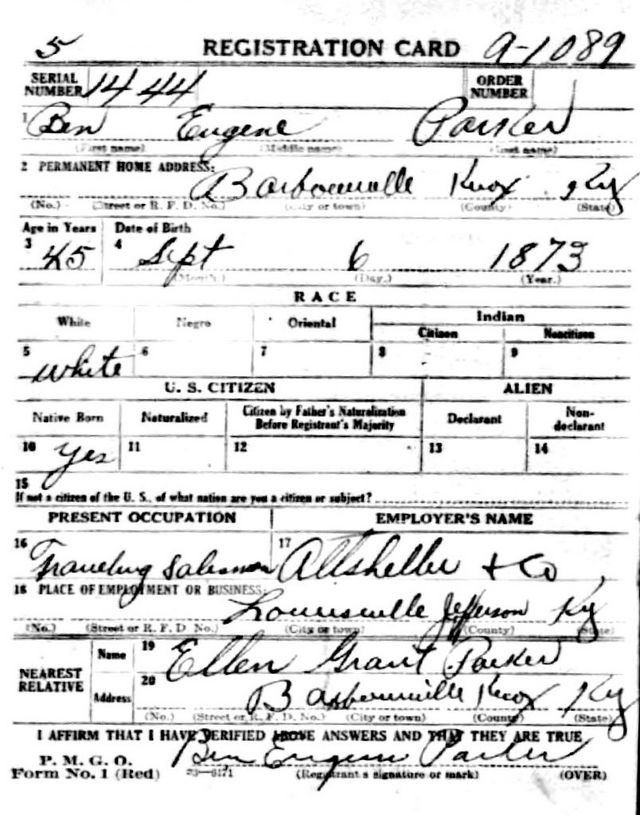 5 REGISTRATION CARD 9-1089
SERIAL NUMBER 1444 ORDER NUMBER
1 Ben Eugene Parker
(First name) (Middle name) (Last name)
2 PERMANENT HOME ADDRESS:
Barbourville Knox Ky
(No.) (Street or R. F. D. No.) (City or town) (County) (State)
Age in Years Date of Birth
3 45 4 Sept 6 1873
(Month.) (Day.) (Year.)
RACE
White Negro Oriental Indian
Citizen Noncitizen
5 white 6 7 8 9
U. S. CITIZEN ALIEN
Native Born Naturalized Citizen by Father's Naturalization Before Registrant's Majority Declarant Non-declarant
10 Yes 11 12 13 14
15
If not a citizen of the U. S., of what nation are you a citizen or subject?
PRESENT OCCUPATION EMPLOYER'S NAME
16 Traveling Salesman 17 Altsheller & Co
18 PLACE OF EMPLOYMENT OR BUSINESS:
Louisville Jefferson Ky
(No.) (Street or R. F. D No.) (City or town) (County) (State)
NEAREST RELATIVE Name 19 Ellen Grant Parker
Address 20 Barbourville Knox Ky
(No.) (Street or R. F. D. No.) (City or town) (County) (State)
I AFFIRM THAT I HAVE VERIFIED ABOVE ANSWERS AND THAT THEY ARE TRUE
P. M. G. O.
Form No. 1 (Red) Ben Eugene Parker
(Registrant's signature or mark) (OVER)